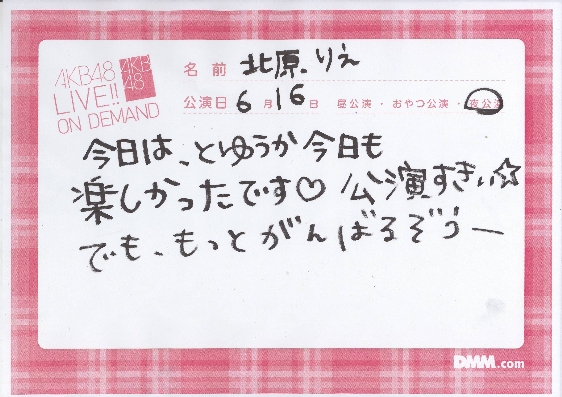 AKB48
LIVE!!
ON DEMAND
AKB
48
名前 北原りえ
公演日 6月16日 昼公演・おやつ公演・夜公演
今日は、とゆうか今日も
楽しかったです♡ 公演すきぃ☆
でも、もっとがんばるぞうー
DMM.com